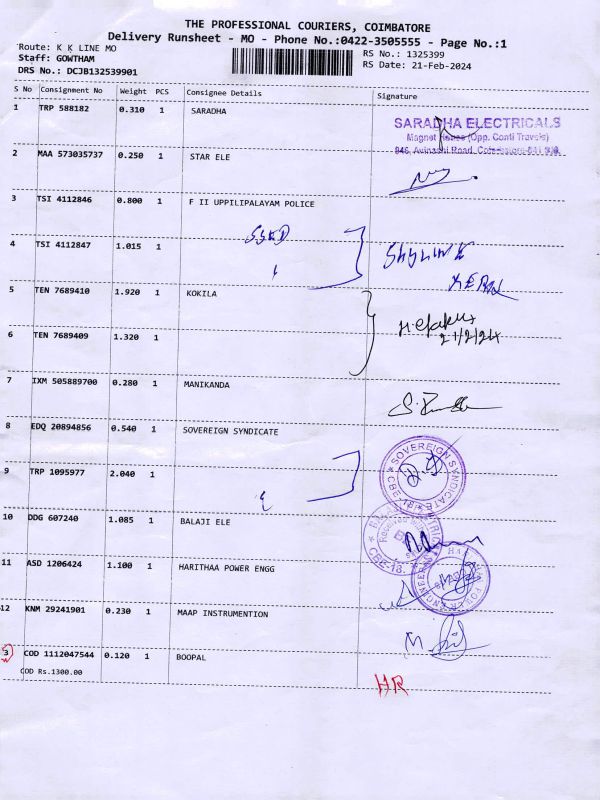 THE PROFESSIONAL COURIERS, COIMBATORE
Delivery Runsheet - MO - Phone No.:0422-3505555 - Page No.:1
Route: K K LINE MO
Staff: GOWTHAM
DRS No.: DCJB132539901
RS No.: 1325399
RS Date: 21-Feb-2024
S No Consignment No Weight PCS Consignee Details Signature
1 TRP 588182 0.310 1 SARADHA
SARADHA ELECTRICALS
Magnet House (Opp. Conti Travels)
846, Avinashi Road, Coimbatore-641
2 MAA 573035737 0.250 1 STAR ELE
3 TSI 4112846 0.800 1 F II UPPILIPALAYAM POLICE
4 TSI 4112847 1.015 1
5 TEN 7689410 1.920 1 KOKILA
21/2/24
6 TEN 7689409 1.320 1
7 IXM 505889700 0.280 1 MANIKANDA
8 EDQ 20894856 0.540 1 SOVEREIGN SYNDICATE
SOVEREIGN SYNDICATE
CBE-18
9 TRP 1095977 2.040 1
10 DDG 607240 1.085 1 BALAJI ELE
CBE-18.
11 ASD 1206424 1.100 1 HARITHAA POWER ENGG
12 KNM 29241901 0.230 1 MAAP INSTRUMENTION
3 COD 1112047544 0.120 1 BOOPAL
COD Rs.1300.00
HR